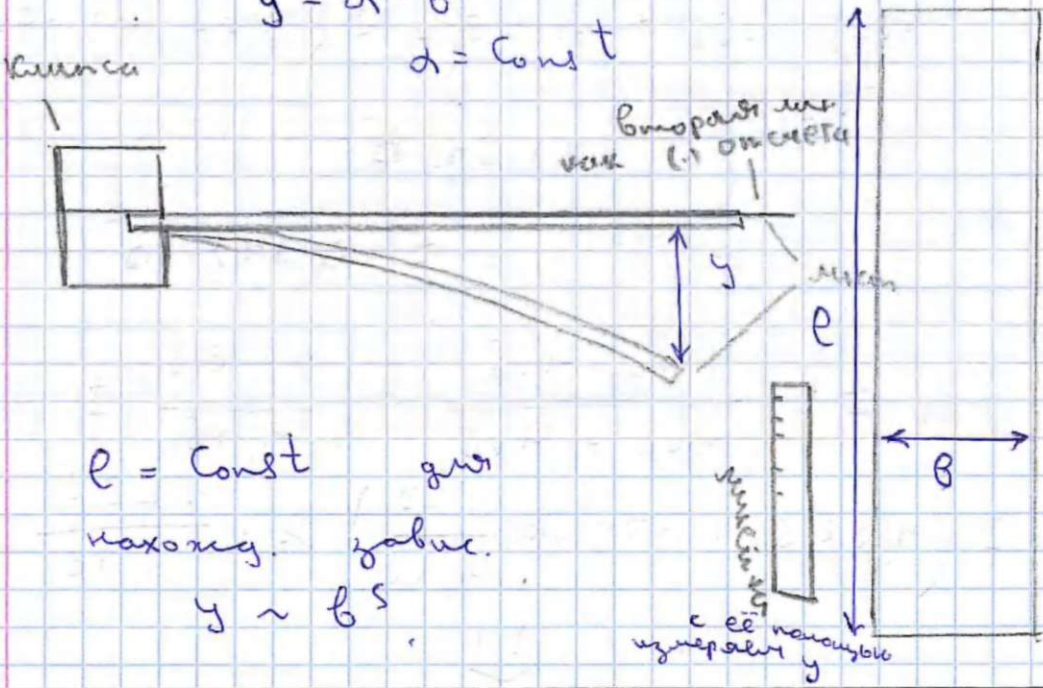 α = Const
клипса
вторая лин.
как (·) отсчёта
y
лист
l
l = Const для
нахожд. завис.
y ~ b^s
b
линейка
с её помощью
измеряем y